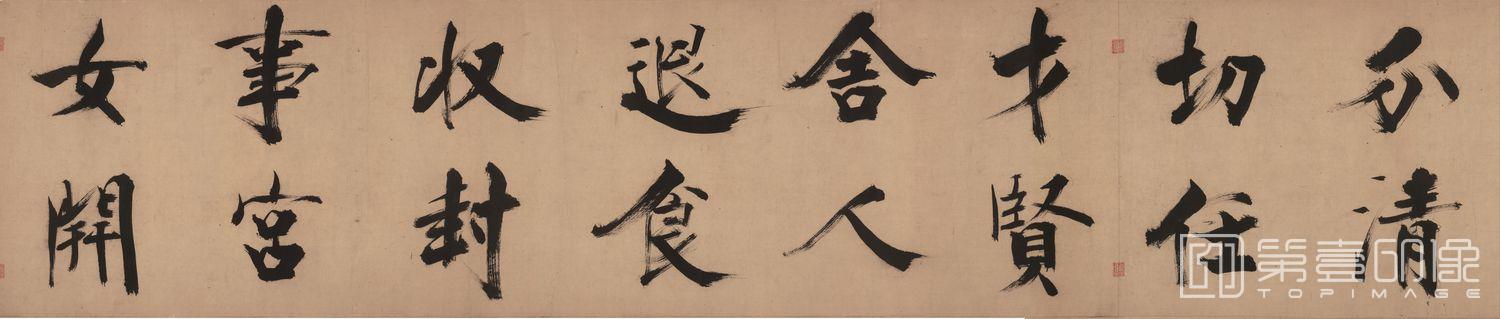 分清
切任
才賢
舍人
退食
收封
事宮
女開
第壹印象
TOPIMAGE